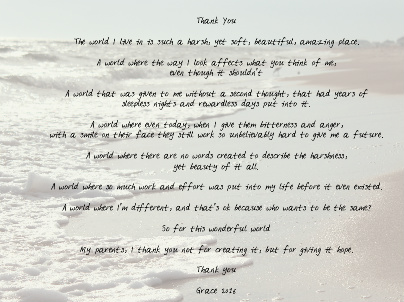 Thank You
The world I live in is such a harsh, yet soft, beautiful, amazing place.
A world where the way I look affects what you think of me,
even though it shouldn't
A world that was given to me without a second thought, that had years of
sleepless nights and rewardless days put into it.
A world where even today, when I give them bitterness and anger,
with a smile on their face they still work so unbelievably hard to give me a future.
A world where there are no words created to describe the harshness,
yet beauty of it all.
A world where so much work and effort was put into my life before it even existed.
A world where I'm different, and that's ok because who wants to be the same?
So for this wonderful world
My parents, I thank you not for creating it, but for giving it hope.
Thank you
Grace 2016